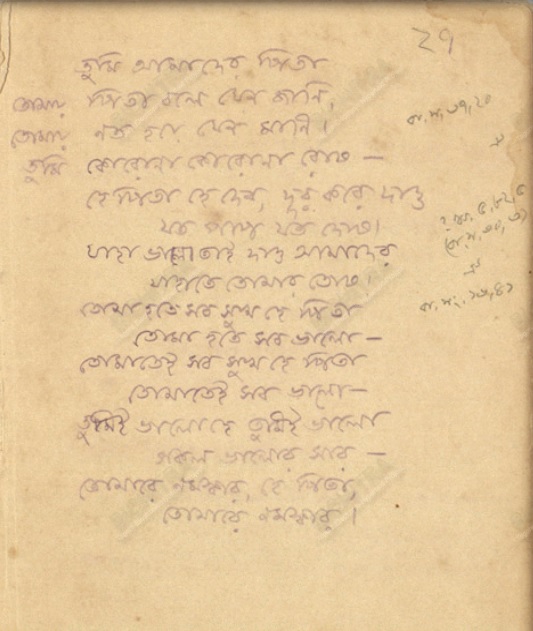 ২৭
তুমি আমাদের পিতা
তোমায় পিতা বলে যেন জানি,
তোমায় নত হয়ে যেন মানি।
তুমি কোরোনা কোরোনা রোষ —
হে পিতা হে দেব, দূর করে দাও
যত পাপ যত দোষ।
যাহা ভালো তাই দাও আমাদের
যাহাতে তোমার তোষ।
তোমা হতে সব সুখ হে পিতা
তোমা হতে সব ভালো —
তোমাতেই সব সুখ হে পিতা
তোমাতেই সব ভালো —
তুমিই ভালো হে তুমিই ভালো
সকল ভালোর সার —
তোমারে নমস্কার, হে পিতা,
তোমারে নমস্কার।